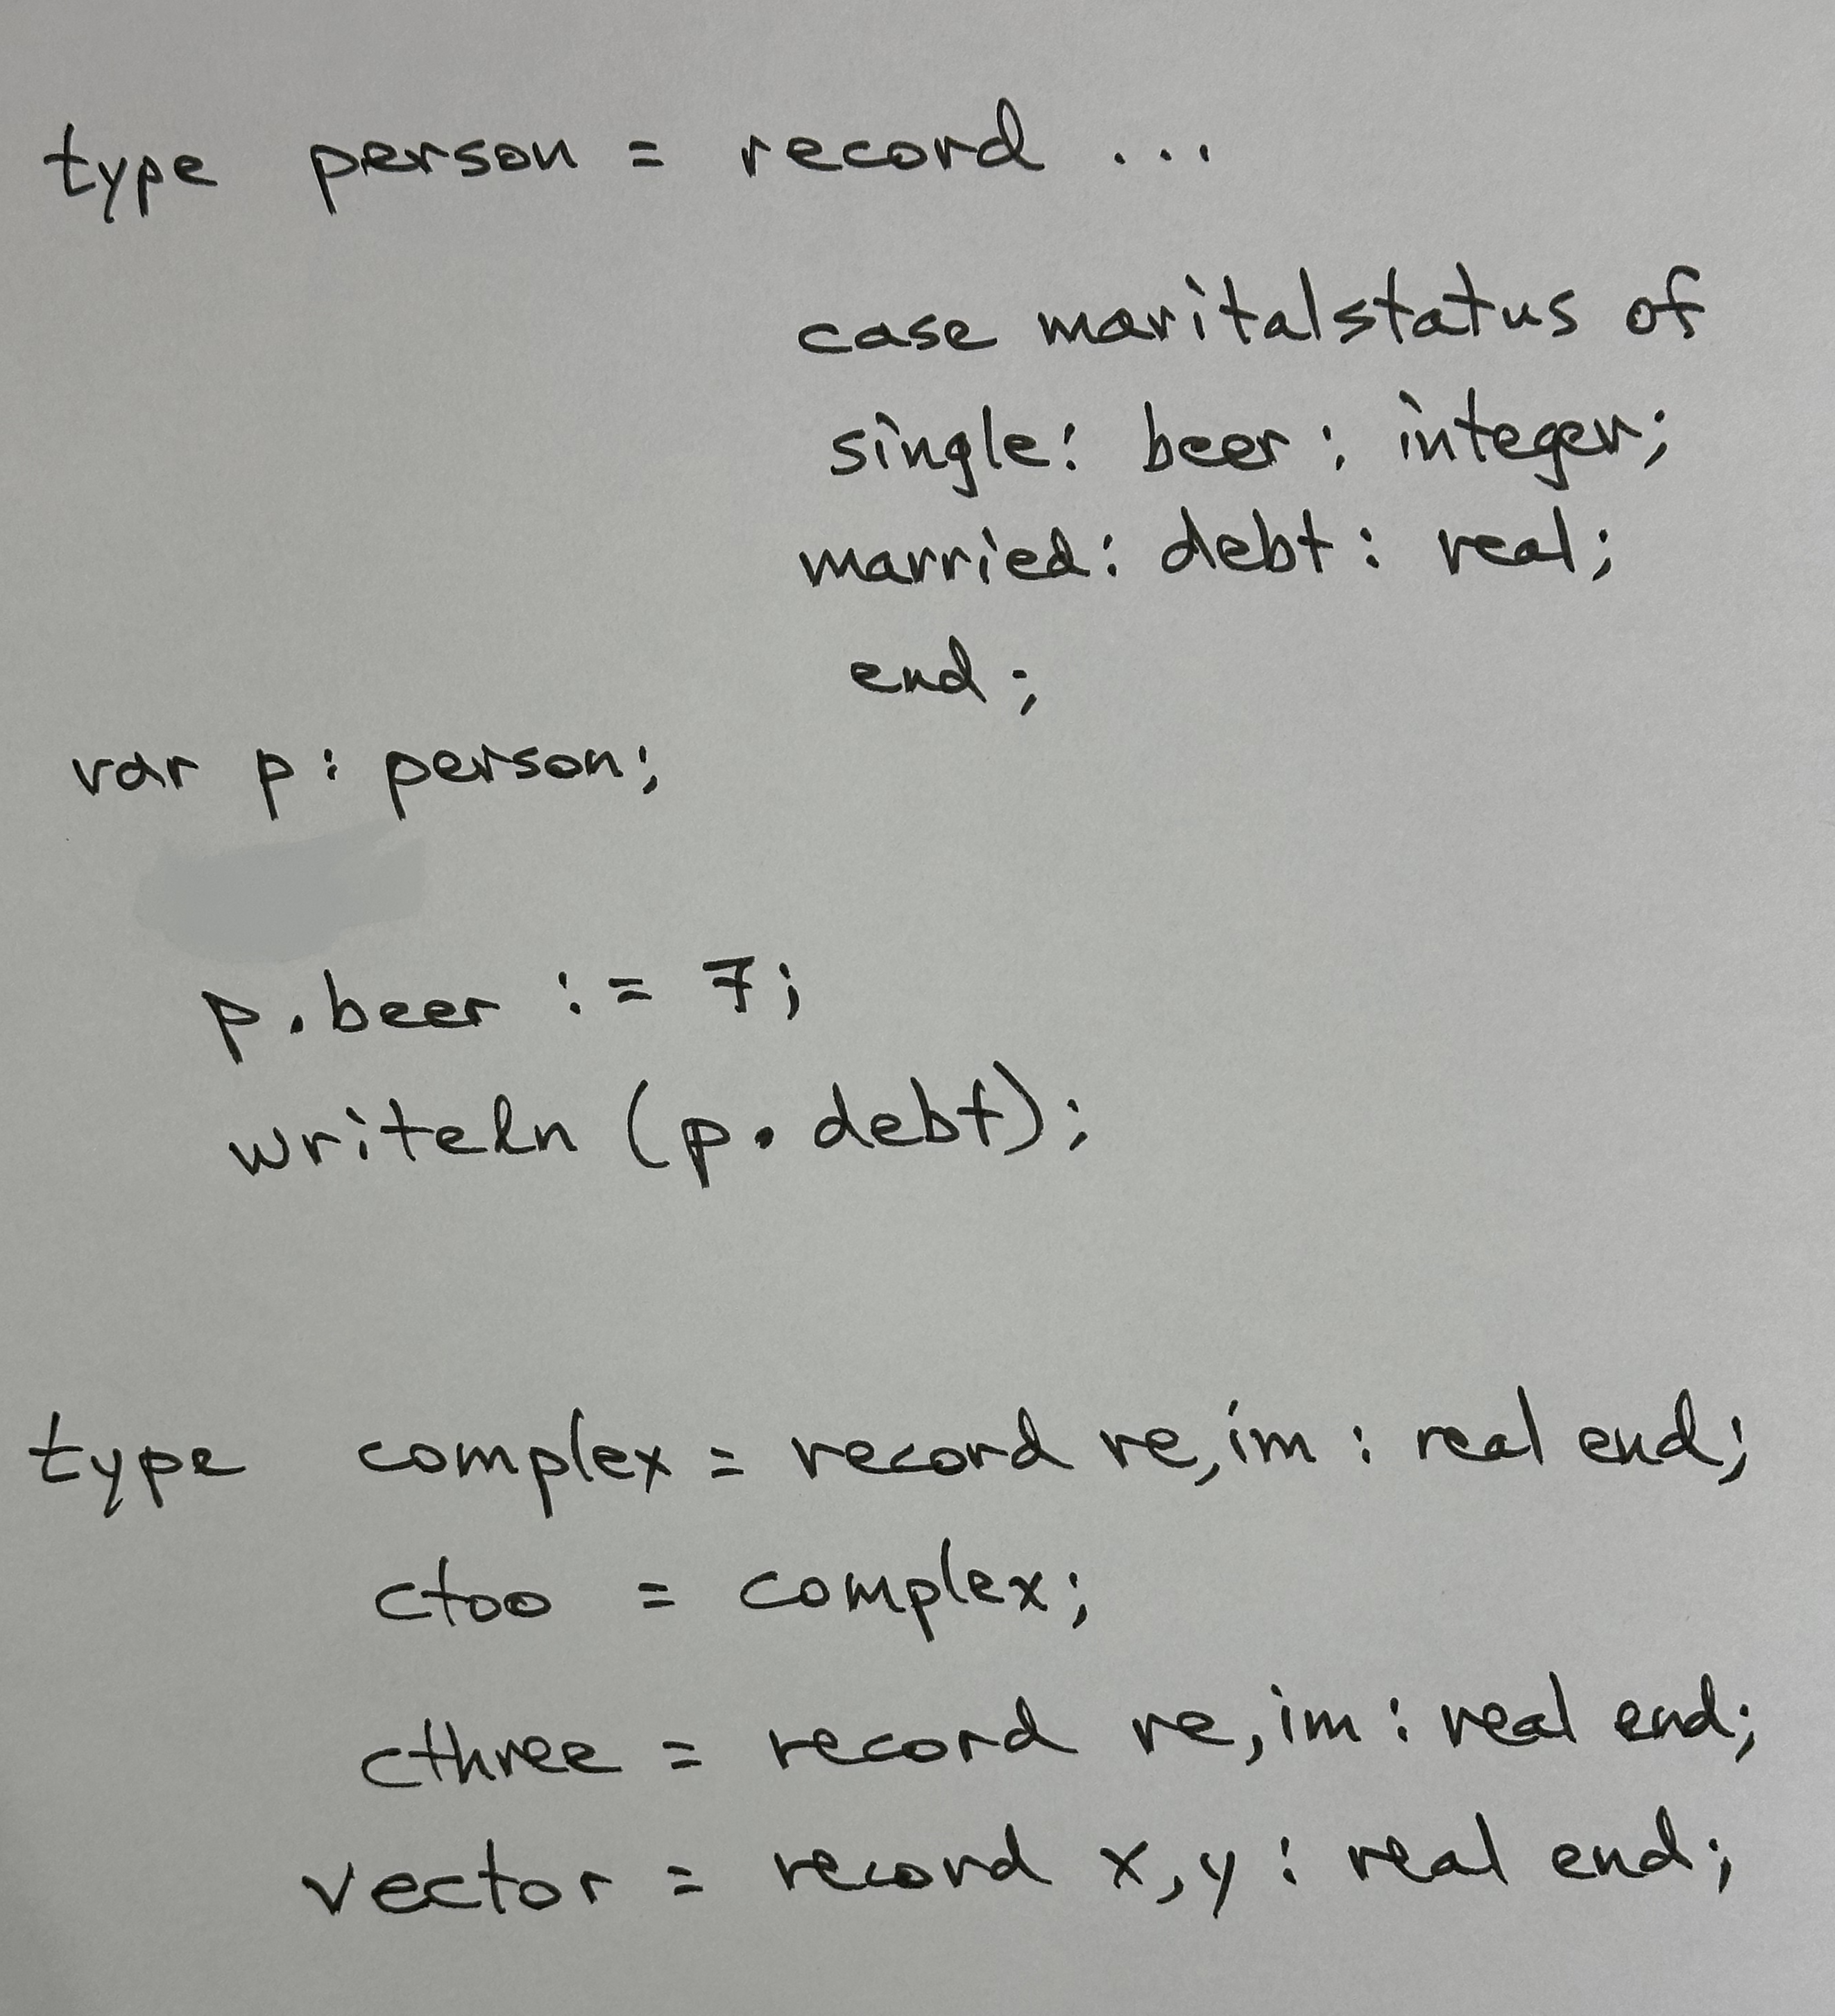 type person = record ...
case maritalstatus of
single: beer: integer;
married: debt: real;
end;
var p: person;
p.beer := 7;
writeln (p.debt);
type complex = record re,im : real end;
ctoo = complex;
cthree = record re,im : real end;
vector = record x,y : real end;